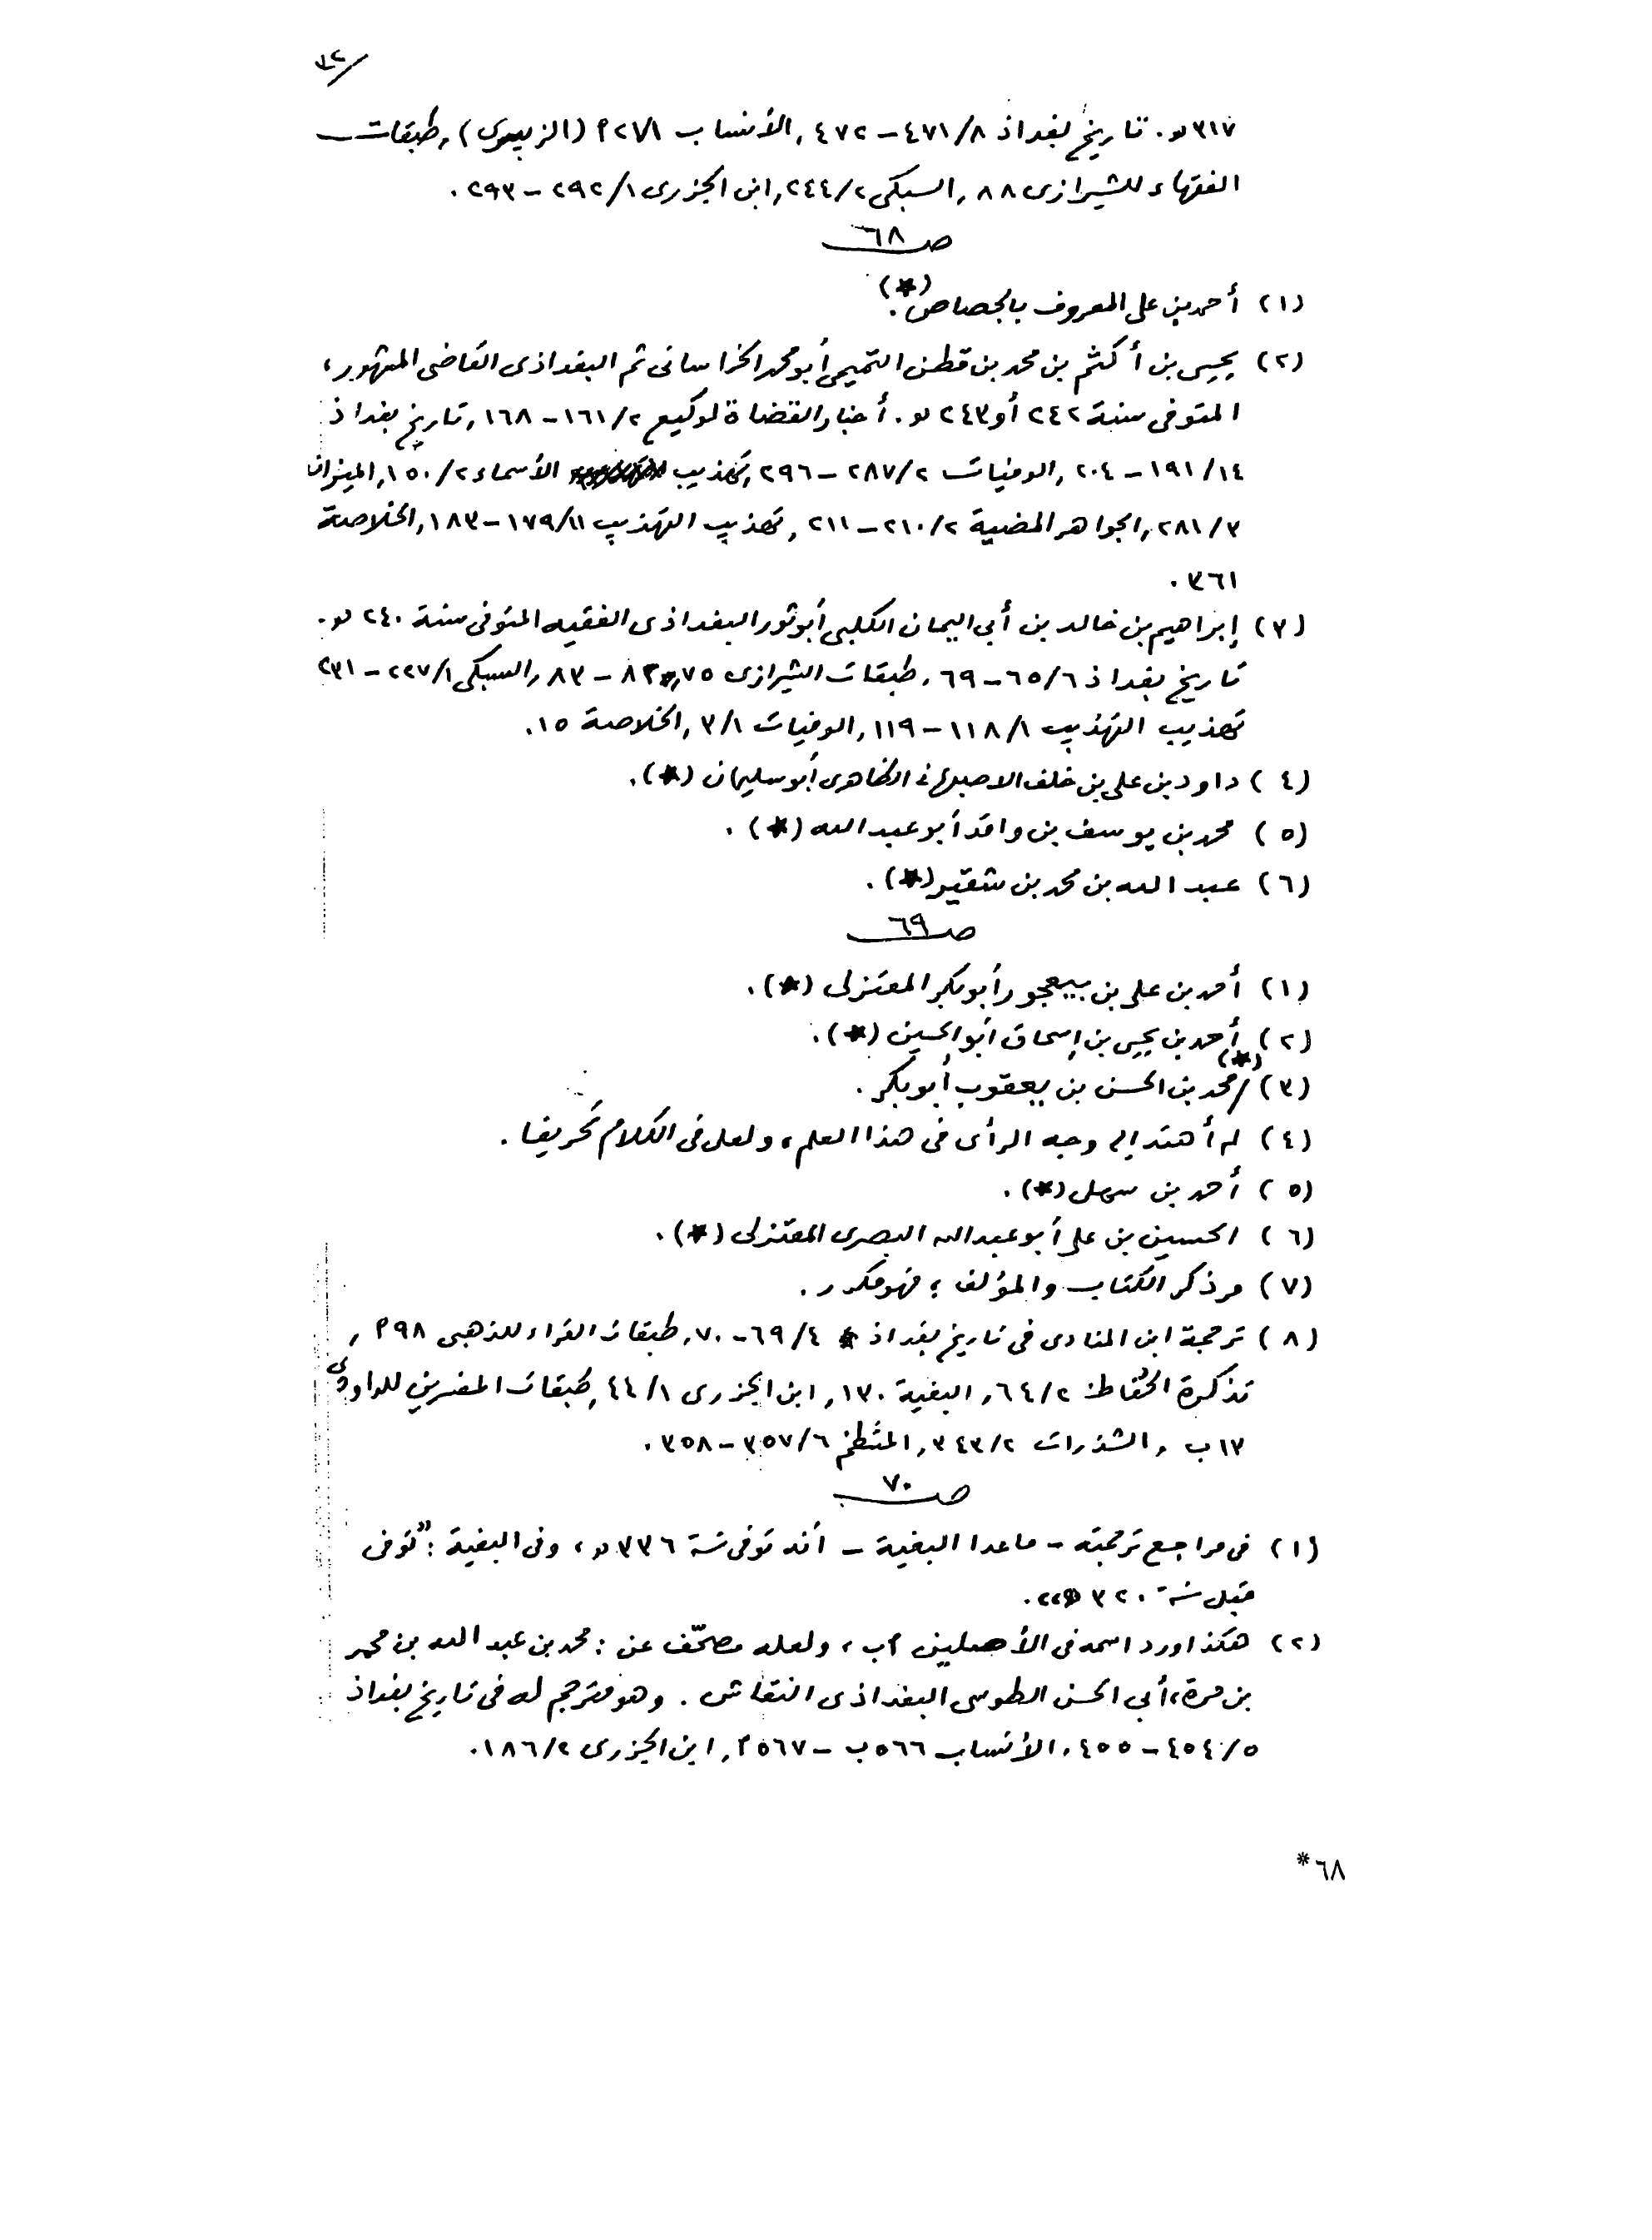 ٧٢
٣١٧ هـ. تاريخ بغداذ ٨/ ٤٧١ – ٤٧٢ , الأنساب ٢٧١ أ (الزبيرى) , طبقات
الفقهاء للشيرازى ٨٨ , السبكى ٢/ ٢٤٤ , ابن الجزرى ١/ ٢٩٢ – ٢٩٣ .
صـ ٦٨
(١) أحمد بن على المعروف بالجصاص (*) .
(٢) يحيى بن أكثم بن محمد بن قطن التميمى أبو محمد الخراسانى ثم البغداذى القاضى المشهور ،
المتوفى سنة ٢٤٢ أو ٢٤٣ هـ . أخبار القضاة لوكيع ٢/ ١٦١ – ١٦٨ , تاريخ بغداذ
١٤/ ١٩١ – ٢٠٤ , الوفيات ٢/ ٢٨٧ – ٢٩٦ , تهذيب الأسماء ٢/ ١٥٠ , الميزان
٣/ ٢٨١ , الجواهر المضية ٢/ ٢١٠ – ٢١١ , تهذيب التهذيب ١١/ ١٧٩ – ١٨٣ , الخلاصة
٣٦١ .
(٣) إبراهيم بن خالد بن أبي اليمان الكلبى أبو ثور البغداذى الفقيه المتوفى سنة ٢٤٠ هـ .
تاريخ بغداذ ٦/ ٦٥ – ٦٩ , طبقات الشيرازى ٧٥ , ٨٢ – ٨٣ , السبكى ١/ ٢٢٧ – ٢٣١
تهذيب التهذيب ١/ ١١٨ – ١١٩ , الوفيات ١/ ٣ , الخلاصة ١٥ .
(٤) داود بن على بن خلف الاصبهانى الظاهرى أبو سليمان (*) .
(٥) محمد بن يوسف بن واقد أبو عبد الله (*) .
(٦) عبد الله بن محمد بن شقير (*) .
صـ ٦٩
(١) أحمد بن على بن بيعجور أبو بكر المعتزلى (*) .
(٢) أحمد بن يحيى بن إسحاق أبو الحسين (*) .
(٣) محمد بن الحسن بن يعقوب أبو بكر (*) .
(٤) لم أهتد إلى وجه الرأى فى هذا العلم ، ولعل فى الكلام تحريفا .
(٥) أحمد بن سهل (*) .
(٦) الحسين بن على أبو عبد الله البصرى المعتزلى (*) .
(٧) مر ذكر الكتاب والمؤلف ؛ فهو مكرر .
(٨) ترجمة ابن المنادى فى تاريخ بغداذ ٤/ ٦٩ – ٧٠ , طبقات القراء للذهبى ٩٨ أ ,
تذكرة الحُفاظ ٢/ ٦٤ , البغية ١٣٠ , ابن الجزرى ١/ ٤٤ , طبقات المفسرين للداودى
١٣ ب , الشذرات ٢/ ٣٤٣ , المنتظم ٦/ ٣٥٧ – ٣٥٨ .
صـ ٧٠
(١) فى مراجع ترجمته – ماعدا البغية – أنه توفى سنة ٣٣٦ هـ ، وفى البغية : "توفى
قبل سنة ٣٢٠" .
(٢) هكذا ورد اسمه فى الأصلين أ ب ، ولعله مصحّف عن : محمد بن عبد الله بن محمد
بن مرة ، أبي الحسن الطوسى البغداذى النقاش . وهو مترجم له فى تاريخ بغداذ
٥/ ٤٥٤ – ٤٥٥ , الأنساب ٥٦٦ ب – ٥٦٧ أ , ابن الجزرى ٢/ ١٨٦ .
٦٨*